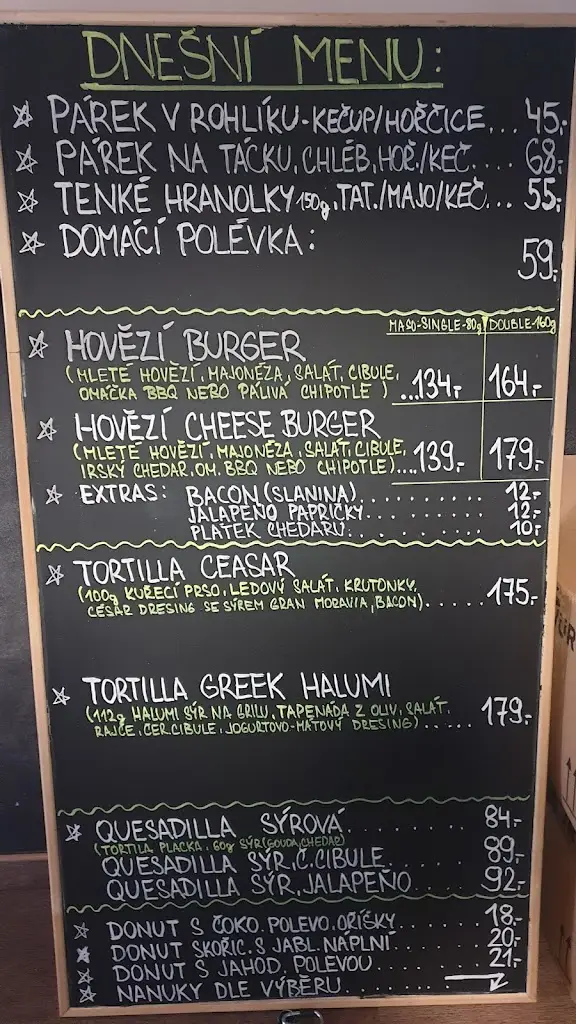 DNEŠNÍ MENU:
☆ PÁREK V ROHLÍKU-KEČUP/HOŘČICE... 45,-
☆ PÁREK NA TÁCKU, CHLÉB, HOŘ./KEČ.... 68,-
☆ TENKÉ HRANOLKY 150g, TAT./MAJO/KEČ... 55,-
☆ DOMÁCÍ POLÉVKA:
59,-
MASO-SINGLE-80g DOUBLE-160g
☆ HOVĚZÍ BURGER
(MLETÉ HOVĚZÍ, MAJONÉZA, SALÁT, CIBULE,
OMÁČKA BBQ NEBO PÁLIVÁ CHIPOTLE )...134,- 164,-
☆ HOVĚZÍ CHEESE BURGER
(MLETÉ HOVĚZÍ, MAJONÉZA, SALÁT, CIBULE,
IRSKÝ CHEDAR, OM. BBQ NEBO CHIPOTLE)...139,- 179,-
☆ EXTRAS: BACON (SLANINA)......... 12,-
JALAPEÑO PAPRIČKY......... 12,-
PLÁTEK CHEDARU......... 10,-
☆ TORTILLA CEASAR
(100g KUŘECÍ PRSO, LEDOVÝ SALÁT, KRUTONKY,
CÉSAR DRESING SE SÝREM GRAN MORAVIA, BACON)..... 175,-
☆ TORTILLA GREEK HALUMI
(112g HALUMI SÝR NA GRILU, TAPENÁDA Z OLIV, SALÁT,
RAJČE, ČER.CIBULE, JOGURTOVO-MÁTOVÝ DRESING)..... 179,-
☆ QUESADILLA SÝROVÁ......... 84,-
(TORTILA PLACKA, 60g SÝR(GOUDA,CHEDAR)
QUESADILLA SÝR,Č.CIBULE...... 89,-
QUESADILLA SÝR, JALAPEÑO.... 92,-
☆ DONUT S ČOKO. POLEVO, OŘÍŠKY...... 18,-
☆ DONUT SKOŘIC. S JABL. NÁPLNÍ..... 20,-
☆ DONUT S JAHOD. POLEVOU....... 21,-
☆ NANUKY DLE VÝBĚRU....... →